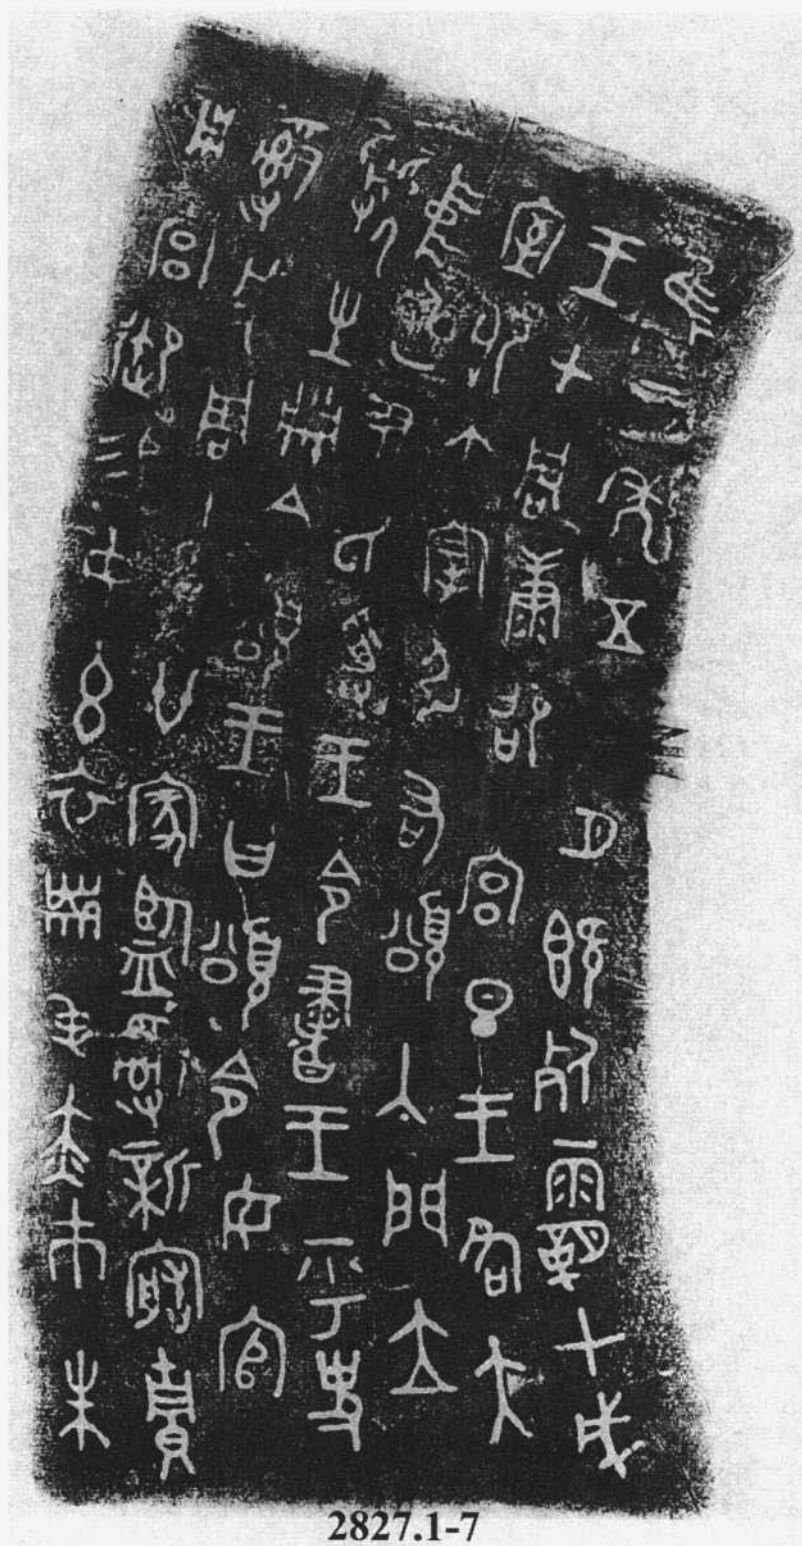 隹三年五月既死霸甲戌
王才周康卲宮旦王各大
室即立宰引右頌入門立
中廷尹氏受王令書王乎史
虢生冊令頌王曰頌令女官
𤔲成周貯廿家監𤔲新造貯
用宮御易女玄衣黹屯赤巿朱
2827.1-7